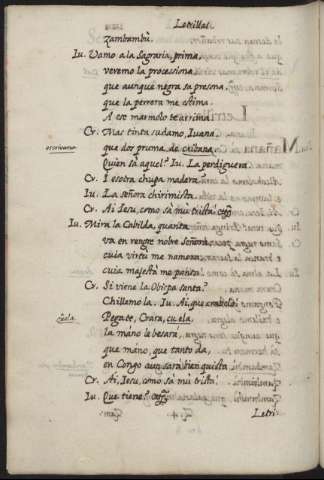 Letrillas.
zambambù.
Iu. Vamo a la Sagraria, prima,
veremo la procesiona,
que aunque negra sa presona,
que la perrera me estima.
A ese marmolo te arrima.
Cr. Mas tinta sudamo, Iuana,
que dos pruma de
Quien sà aquel? Iu. La perdiguera.
Cr. I esotra chupa madera?
Iu. La señora chirimista.
Cr. Ai Iesu, como sà mu trista!
Iu. Mira la Cabilda, quanta
va en rengre nobre Señora,
cuia virtu me namora,
cuia majestà me
Cr. Si viene la Obispa santa?
Chillemo la. Iu. Ai, que
Pegate, Crara, cuela
cuela
la màno le besarà,
que màno, que tanto da,
en Congo aun sarà bien quista.
Cr. Ai, Iesu, como sà mu trista!
Iu. Que tiene?
Letri-